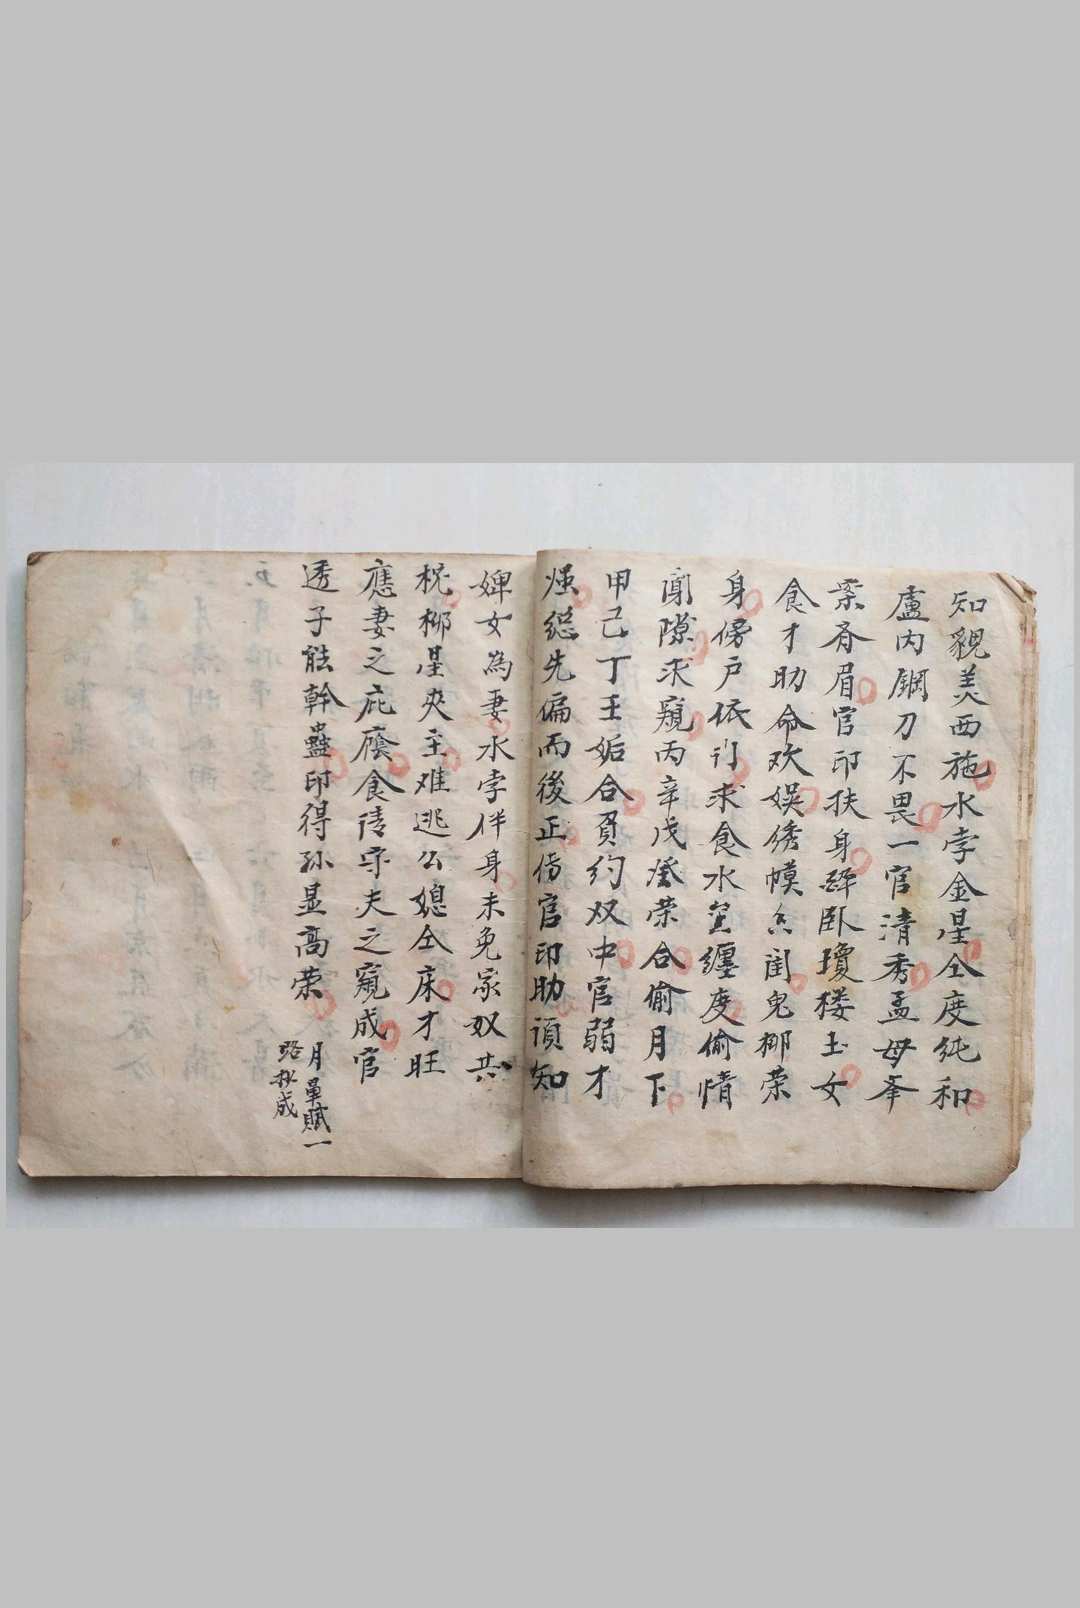 知貌美西施水孛金星仝度纯和
盧内鋼刀不畏一官清秀孟母峯
案斉眉官印扶身醉卧瓊楼玉女
食才助命欢娱绣幙香闺鬼柳荣
身傍户依门求食水鸾纏度偷情
闺隙求窺丙辛戊癸荣合偷月下
甲己丁壬姤合負约双中官弱才
强総先偏而後正傷官印助須知
婢女為妻水孛伴身未免家奴共
柷柳星夾主难逃公媳仝床才旺
應妻之庇廕食倩守夫之窺成官
透子能幹蠱印得孙显高荣
月暈賦一
路抄成